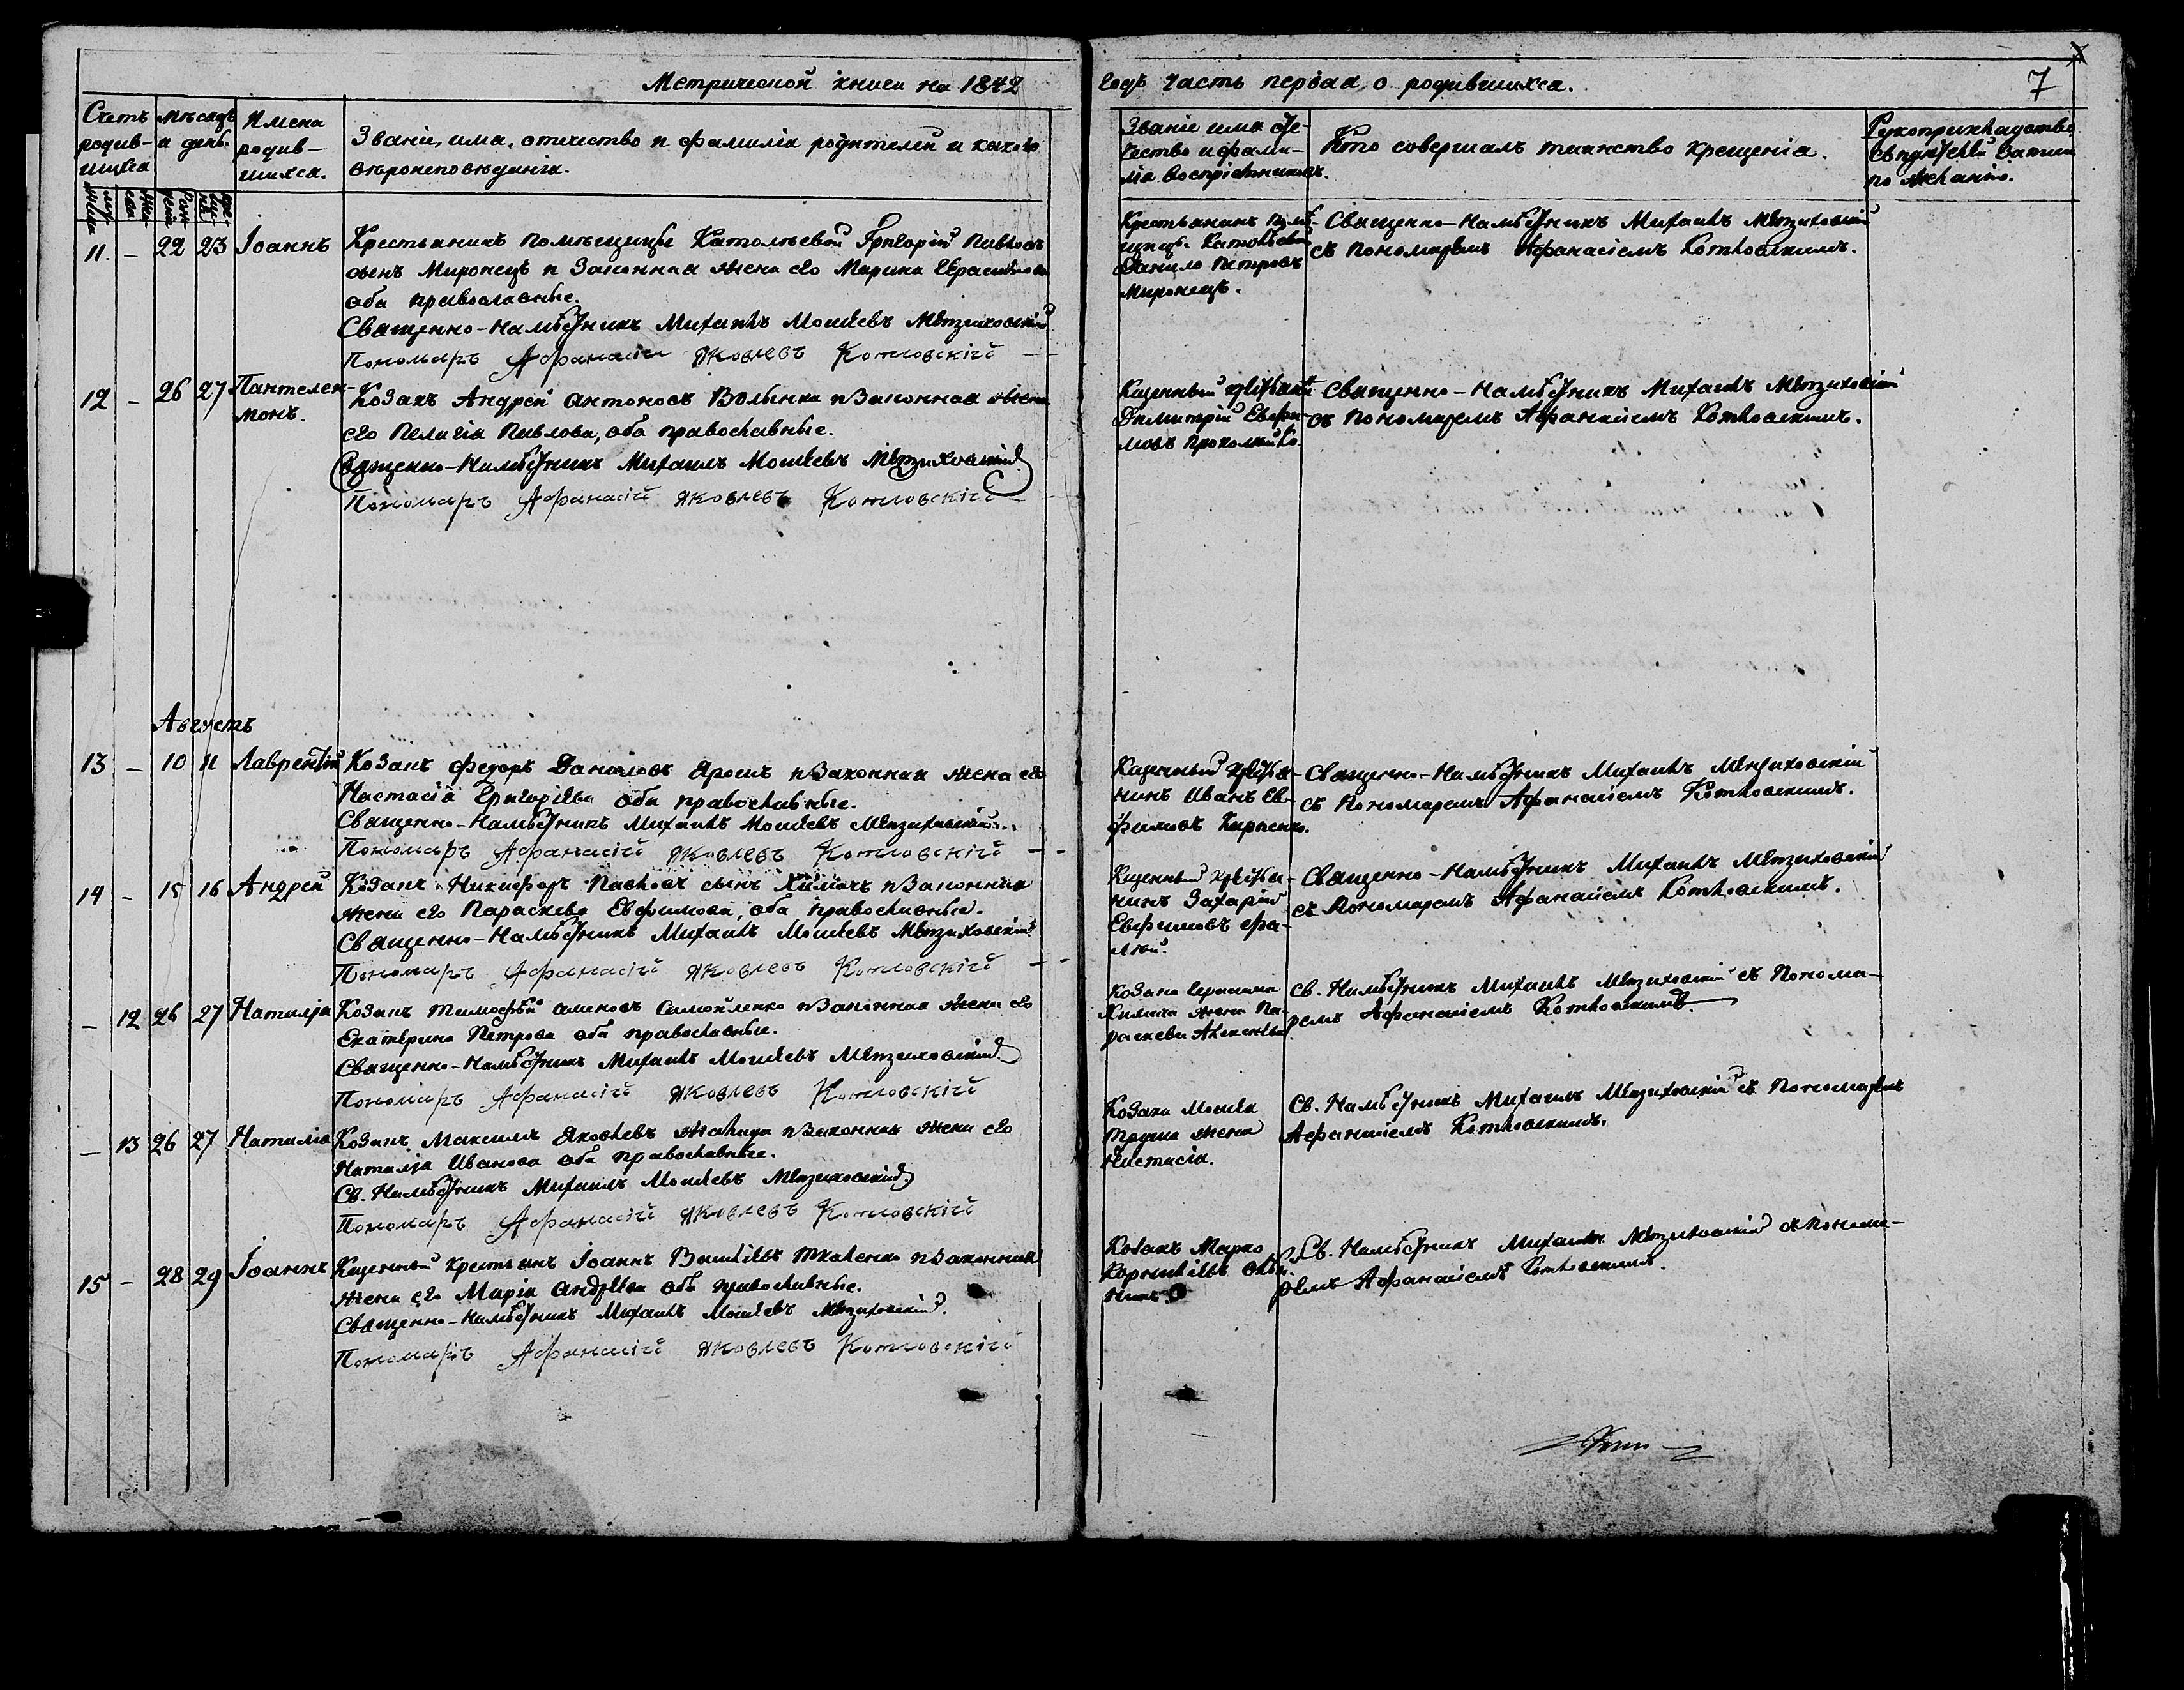 Метрической книги на 1842
Счетъ родив-шихся
мѣсяцъ и день.
Имена родив-шихся.
Званіе, имя, отчество и фамилія родителей и какого
вѣроисповѣданія.
11. – 22 23 Іоаннъ
Крестьянинъ помѣщицы Григорій Павловъ
сынъ Миронецъ и Законная жена его Марина
оба православные.
Священно-Намѣстникъ Михаилъ Моисеевъ
Пономаръ Афанасій Яковлевъ Котловскій
12 – 26 27 Пантелей-
монъ.
Козакъ Андрей Антоновъ Волынка и Законная жена
его Пелагія Павлова, оба православные.
Священно-Намѣстникъ Михаилъ Моисеевъ
Пономаръ Афанасій Яковлевъ Котловскій
Августъ
13 – 10 11 Лаврентій
Козакъ Федоръ Даниловъ Ярошъ и Законная жена его
Настасія Григоріева оба православные.
Священно-Намѣстникъ Михаилъ Моисеевъ
Пономаръ Афанасій Яковлевъ Котловскій
14 – 15 16 Андрей
Козакъ Никифоръ Павловъ сынъ Химачъ и Законная
жена его Параскева Евфимова, оба православные.
Священно-Намѣстникъ Михаилъ Моисеевъ
Пономаръ Афанасій Яковлевъ Котловскій
– 12 26 27 Наталія
Козакъ Тимофѣй Самойленко и Законная жена его
Екатерина Петрова оба православные.
Священно-Намѣстникъ Михаилъ Моисеевъ
Пономаръ Афанасій Яковлевъ Котловскій
– 13 26 27 Наталія
Козакъ Максимъ Яковлевъ и Законная жена его
Наталія Иванова оба православные.
Св. Намѣстникъ Михаилъ Моисеевъ
Пономаръ Афанасій Яковлевъ Котловскій
15 – 28 29 Іоаннъ
Казенный крестьянинъ Іоаннъ Васильевъ Ткаченко и Законная
жена его Марія Андреева оба православные.
Священно-Намѣстникъ Михаилъ Моисеевъ
Пономаръ Афанасій Яковлевъ Котловскій
годъ часть первая о родившихся.
7
Званіе имя оте-
чество и фами-
лія воспріемниковъ.
Кто совершалъ таинство крещенія.
Рукоприкладство
свидѣтелей записи
по желанію.
Крестьянинъ помѣ-
щицы
Данило Петровъ
Миронецъ.
Священно-Намѣстникъ Михаилъ
съ Пономаремъ Афанасіемъ Котловскимъ.
Казенный крестьянинъ
Димитрій Евфи-
мовъ
Священно-Намѣстникъ Михаилъ
съ Пономаремъ Афанасіемъ Котловскимъ.
Казенный крестья-
нинъ Иванъ Ев-
фимовъ Карпенко.
Священно-Намѣстникъ Михаилъ
съ Пономаремъ Афанасіемъ Котловскимъ.
Казенный крестья-
нинъ Захарій
Евфимовъ
Священно-Намѣстникъ Михаилъ
съ Пономаремъ Афанасіемъ Котловскимъ.
Козака Герасима
Химача жена Па-
раскева Алексѣева
Св. Намѣстникъ Михаилъ съ Понома-
ремъ Афанасіемъ Котловскимъ.
Козака Моисея
жена
Настасія.
Св. Намѣстникъ Михаилъ съ Пономаремъ
Афанасіемъ Котловскимъ.
Козакъ Марко
Корнильевъ
Св. Намѣстникъ Михаилъ съ Понома-
ремъ Афанасіемъ Котловскимъ.